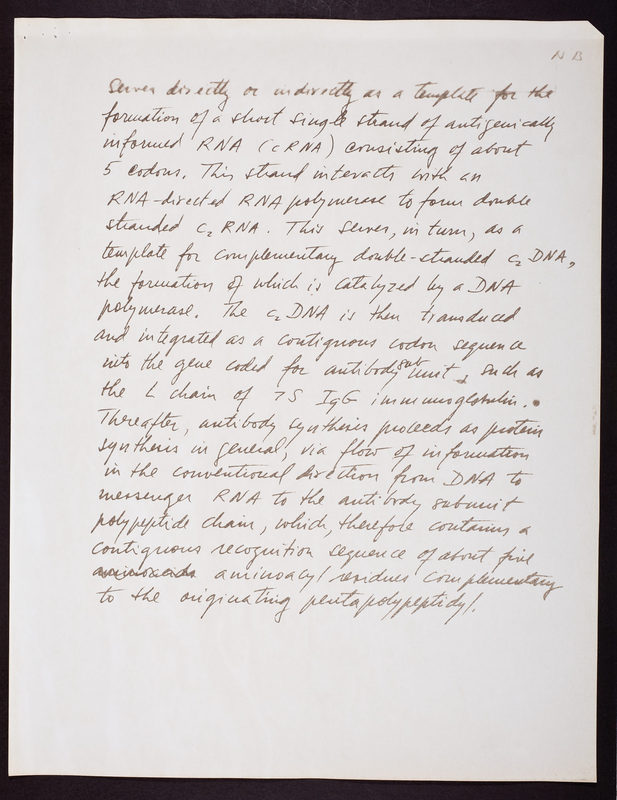 N B
serves directly or indirectly as a template for the
formation of a short single strand of antigenically
informed RNA (cRNA) consisting of about
5 codons. This strand interacts with an
RNA-directed RNA polymerase to form double
stranded c₂ RNA. This serves, in turn, as a
template for complementary double-stranded c₂ DNA,
the formation of which is catalyzed by a DNA
polymerase. The c₂ DNA is then transduced
and integrated as a contiguous codon sequence
into the gene coded for antibody subunit, such as
the L chain of 7S IgG immunoglobulin.
Thereafter, antibody synthesis proceeds as protein
synthesis in general, via flow of information
in the conventional direction from DNA to
messenger RNA to the antibody subunit
polypeptide chain, which, therefore contains a
contiguous recognition sequence of about five
aminoacids aminoacyl residues complementary
to the originating pentapolypeptidyl.